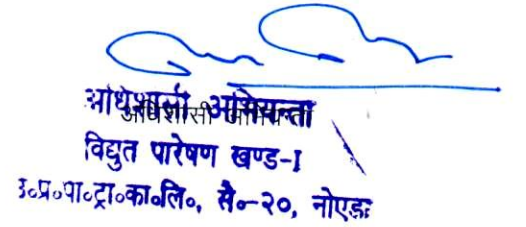 अधिशासी अभियन्ता
अधिशासी अभियन्ता
विद्युत पारेषण खण्ड-I
उ०प्र०पा०ट्रा०का०लि०, सै०-२०, नोएडा